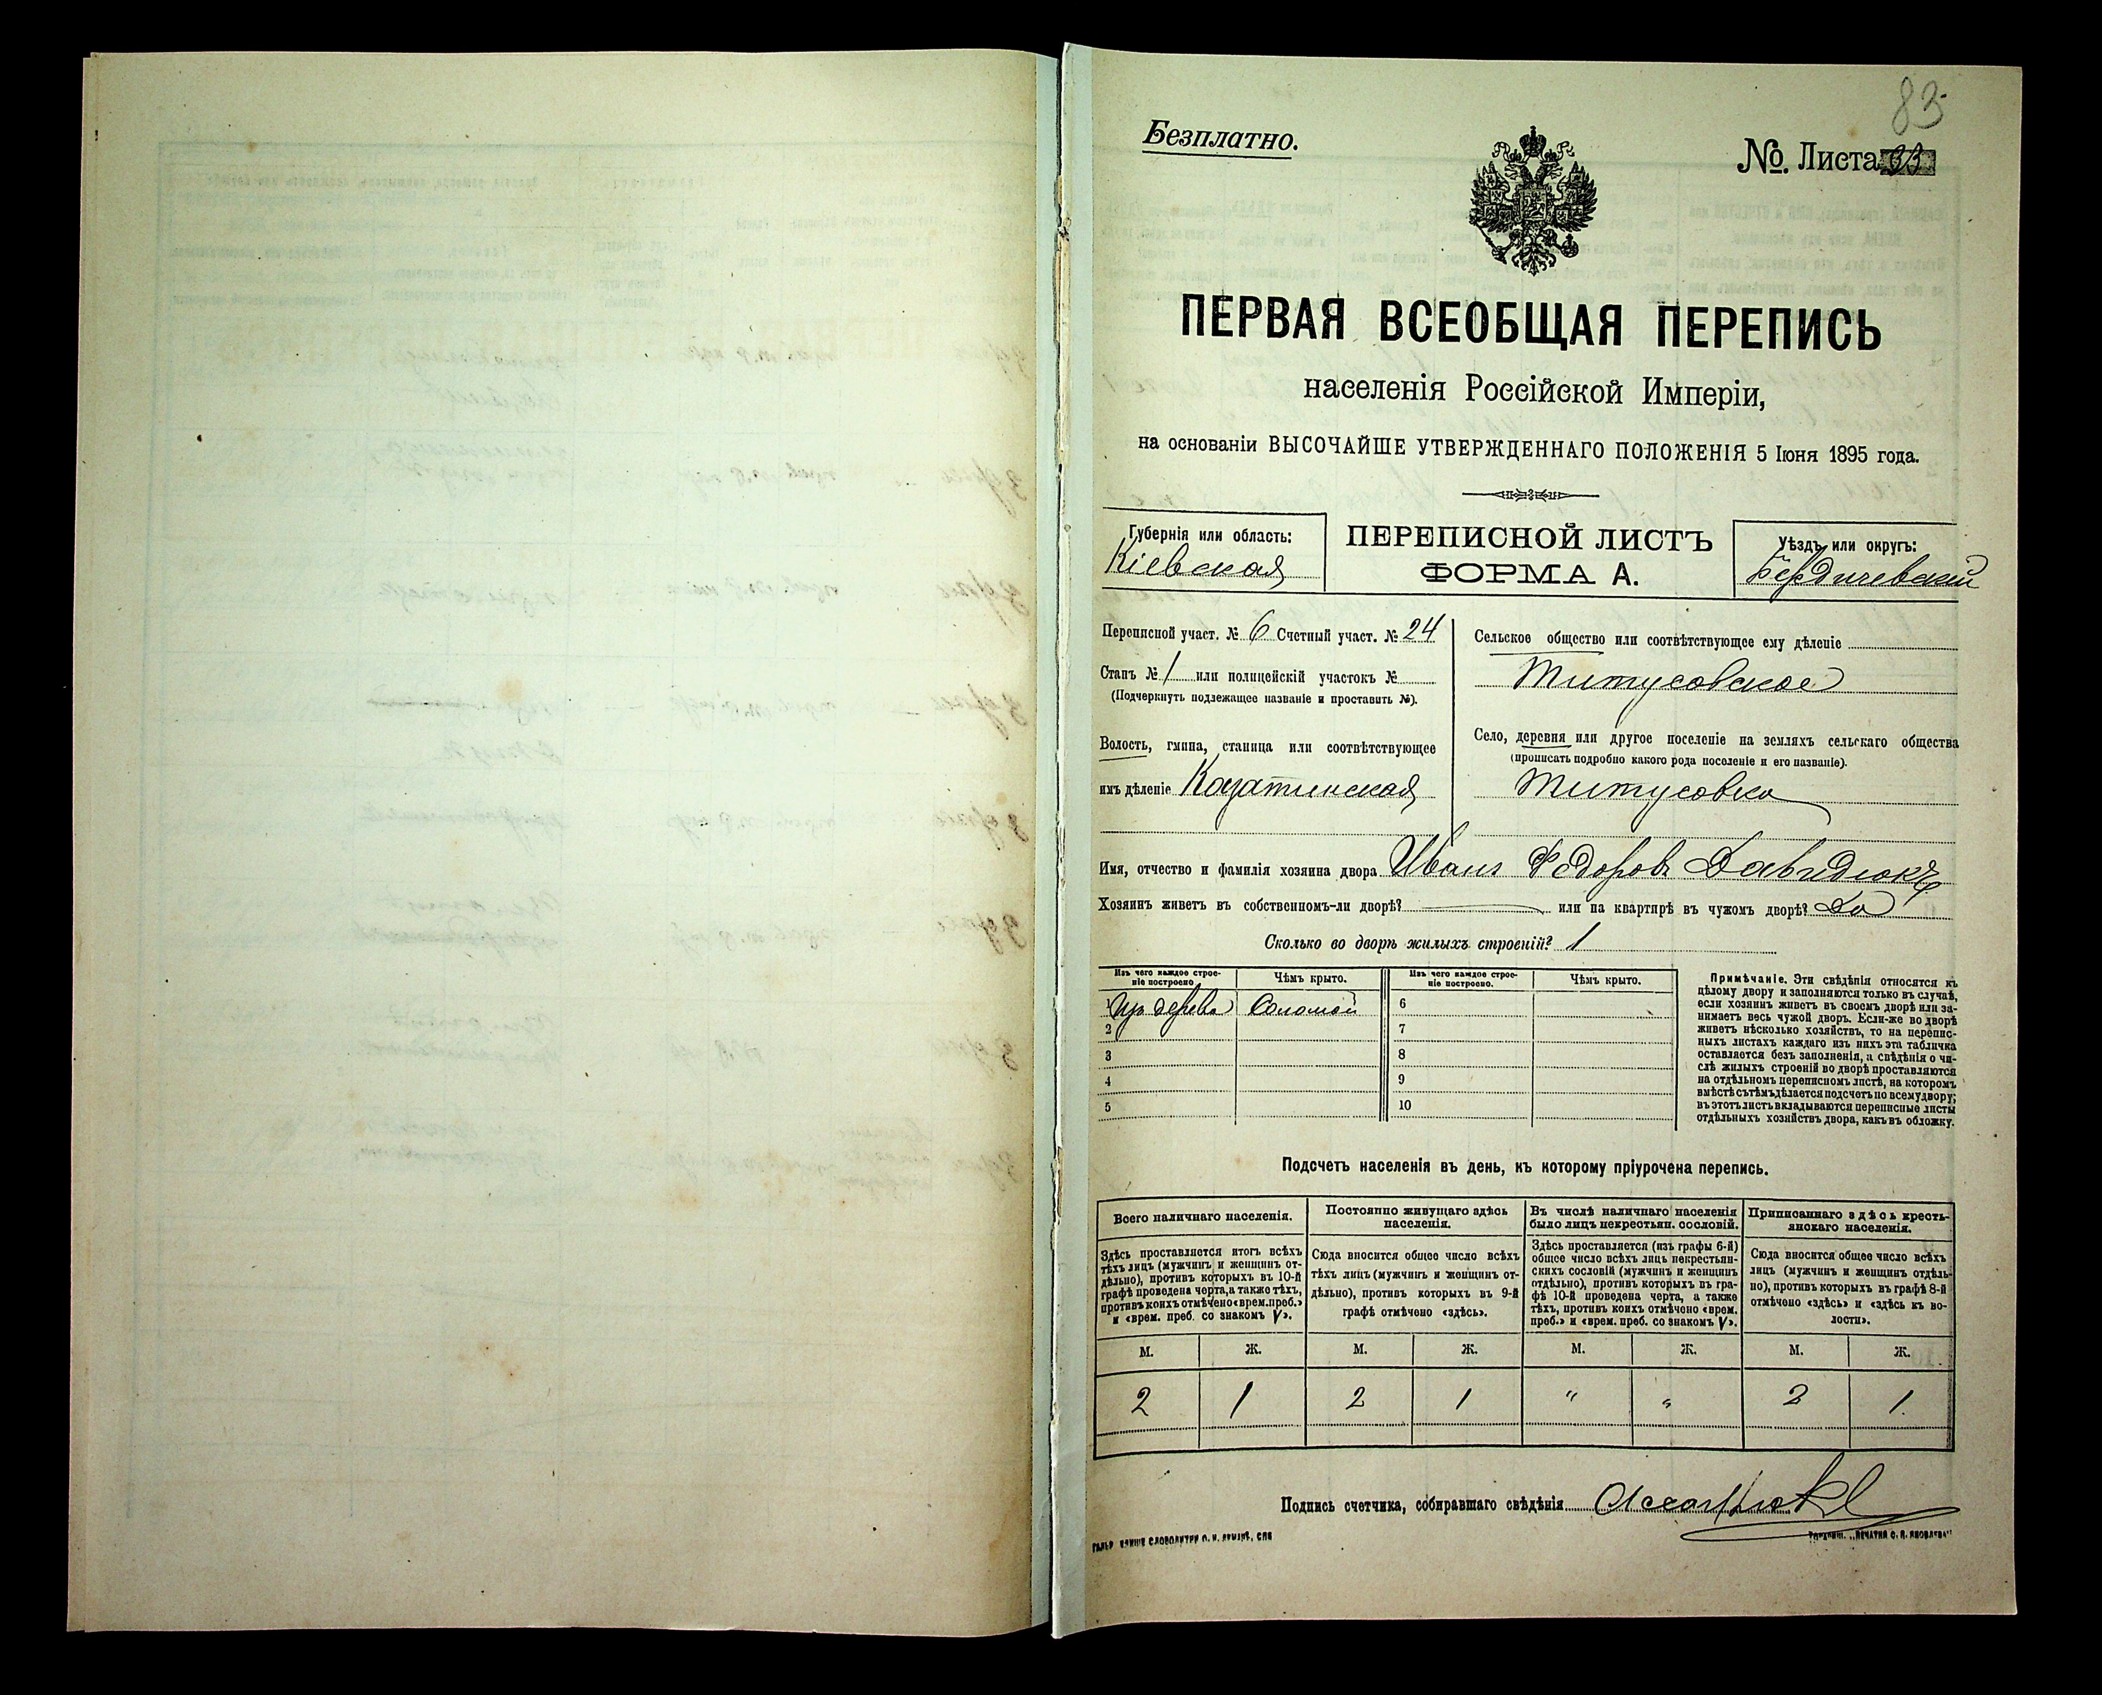 83
Безплатно.
№. Листа 33
ПЕРВАЯ ВСЕОБЩАЯ ПЕРЕПИСЬ
населенія Россійской Имперіи,
на основаніи ВЫСОЧАЙШЕ УТВЕРЖДЕННАГО ПОЛОЖЕНІЯ 5 Іюня 1895 года.
Губернія или область:
Кіевская
ПЕРЕПИСНОЙ ЛИСТЪ
ФОРМА А.
Уѣздъ или округъ:
Бердичевскій
Переписной участ. № 6 Счетный участ. № 24
Станъ № 1 или полицейскій участокъ №
(Подчеркнуть подлежащее названіе и проставить №).
Волость, гмина, станица или соотвѣтствующее
имъ дѣленіе Козатинская
Сельское общество или соотвѣтствующее ему дѣленіе
Титусовское
Село, деревня или другое поселеніе на земляхъ сельскаго общества
(прописать подробно какого рода поселеніе и его названіе).
Титусовка
Имя, отчество и фамилія хозяина двора Иванъ Федоровъ Давидюкъ
Хозяинъ живетъ въ собственномъ-ли дворѣ? или на квартирѣ въ чужомъ дворѣ? Да
Сколько во дворѣ жилыхъ строеній? 1
Изъ чего каждое строе-
ніе построено
Чѣмъ крыто.
Изъ чего каждое строе-
ніе построено.
Чѣмъ крыто.
1 Изъ дерева Соломой 6
2 7
3 8
4 9
5 10
Примѣчаніе. Эти свѣдѣнія относятся къ
цѣлому двору и заполняются только въ случаѣ,
если хозяинъ живетъ въ своемъ дворѣ или за-
нимаетъ весь чужой дворъ. Если-же во дворѣ
живетъ нѣсколько хозяйствъ, то на перепис-
ныхъ листахъ каждаго изъ нихъ эта табличка
оставляется безъ заполненія, а свѣдѣнія о чи-
слѣ жилыхъ строеній во дворѣ проставляются
на отдѣльномъ переписномъ листѣ, на которомъ
вмѣстѣ съ тѣмъ дѣлается подсчетъ по всему двору;
въ этотъ листъ вкладываются переписные листы
отдѣльныхъ хозяйствъ двора, какъ въ обложку.
Подсчетъ населенія въ день, къ которому пріурочена перепись.
Всего наличнаго населенія.
Постоянно живущаго здѣсь
населенія.
Въ числѣ наличнаго населенія
было лицъ некрестьян. сословій.
Приписаннаго здѣсь кресть-
янскаго населенія.
Здѣсь проставляется итогъ всѣхъ
тѣхъ лицъ (мужчинъ и женщинъ от-
дѣльно), противъ которыхъ въ 10-й
графѣ проведена черта, а также тѣхъ,
противъ коихъ отмѣчено «врем. преб.»
и «врем. преб. со знакомъ V».
Сюда вносится общее число всѣхъ
тѣхъ лицъ (мужчинъ и женщинъ от-
дѣльно), противъ которыхъ въ 9-й
графѣ отмѣчено «здѣсь».
Здѣсь проставляется (изъ графы 6-й)
общее число всѣхъ лицъ некрестьян-
скихъ сословій (мужчинъ и женщинъ
отдѣльно), противъ которыхъ въ гра-
фѣ 10-й проведена черта, а также
тѣхъ, противъ коихъ отмѣчено «врем.
преб.» и «врем. преб. со знакомъ V».
Сюда вносится общее число всѣхъ
лицъ (мужчинъ и женщинъ отдѣль-
но), противъ которыхъ въ графѣ 8-й
отмѣчено «здѣсь» и «здѣсь къ во-
лости».
М. Ж. М. Ж. М. Ж. М. Ж.
2 1 2 1 " " 2 1
Подпись счетчика, собиравшаго свѣдѣнія